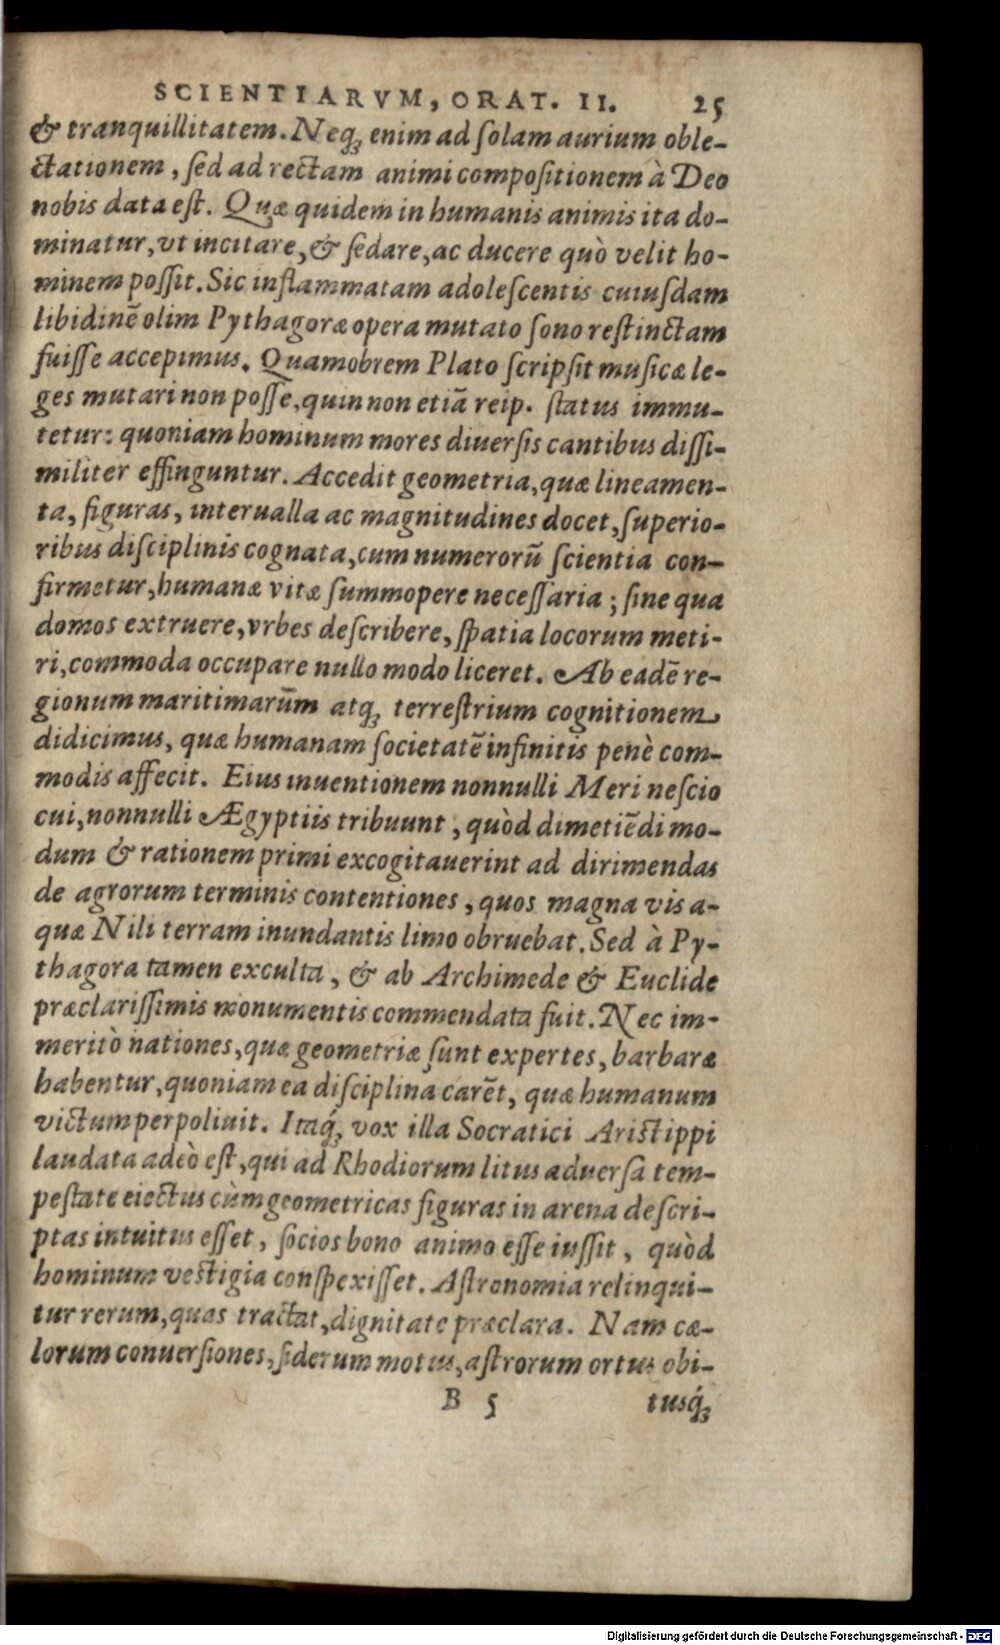 SCIENTIARVM, ORAT. II. 25
& tranquillitatem. Neq́ꝫ enim ad ſolam aurium oble-
ctationem, ſed ad rectam animi compoſitionem à Deo
nobis data eſt. Quæ quidem in humanis animis ita do-
minatur, vt incitare, & ſedare, ac ducere quò velit ho-
minem poſſit. Sic inflammatam adoleſcentis cuiuſdam
libidinē olim Pythagoræ opera mutato ſono reſtinctam
fuiſſe accepimus. Quamobrem Plato ſcripſit muſicæ le-
ges mutari non poſſe, quin non etiā reip. ſtatus immu-
tetur: quoniam hominum mores diuerſis cantibus diſſi-
militer effinguntur. Accedit geometria, quæ lineamen-
ta, figuras, interualla ac magnitudines docet, ſuperio-
ribus diſciplinis cognata, cum numerorū ſcientia con-
firmetur, humanæ vitæ ſummopere neceſſaria; ſine qua
domos extruere, vrbes deſcribere, ſpatia locorum meti-
ri, commoda occupare nullo modo liceret. Ab eadē re-
gionum maritimarūm atqꝫ terreſtrium cognitionem
didicimus, quæ humanam ſocietatē infinitis penè com-
modis affecit. Eius inuentionem nonnulli Meri neſcio
cui, nonnulli Ægyptiis tribuunt, quòd dimetiēdi mo-
dum & rationem primi excogitauerint ad dirimendas
de agrorum terminis contentiones, quos magna vis a-
quæ Nili terram inundantis limo obruebat. Sed à Py-
thagora tamen exculta, & ab Archimede & Euclide
præclariſſimis monumentis commendata fuit. Nec im-
meritò nationes, quæ geometriæ ſunt expertes, barbaræ
habentur, quoniam ea diſciplina carēt, quæ humanum
victum perpoliuit. Itaq́ꝫ vox illa Socratici Ariſtippi
laudata adeò eſt, qui ad Rhodiorum litus aduerſa tem-
peſtate eiectus cùm geometricas figuras in arena deſcri-
ptas intuitus eſſet, ſocios bono animo eſſe iuſſit, quòd
hominum veſtigia conſpexiſſet. Aſtronomia relinqui-
tur rerum, quas tractat, dignitate præclara. Nam cæ-
lorum conuerſiones, ſiderum motus, aſtrorum ortus obi-
B 5 tusq́ꝫ
Digitalisierung gefördert durch die Deutsche Forschungsgemeinschaft - DFG